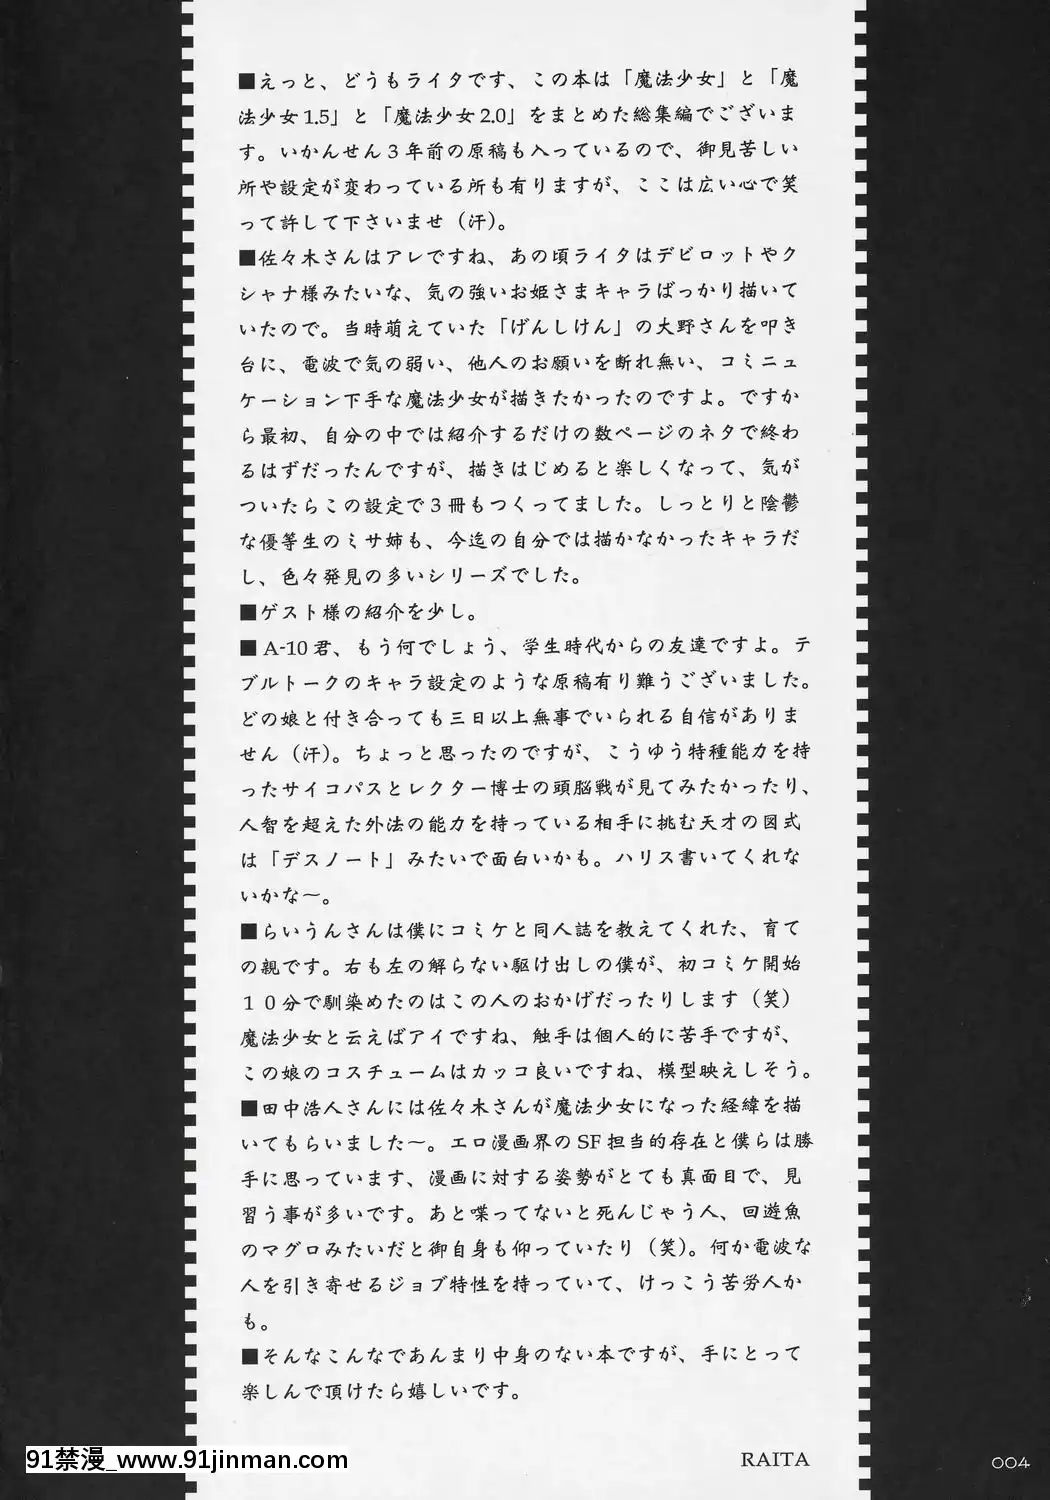 ■えっと、どうもライタです、この本は「魔法少女」と「魔
法少女1.5」と「魔法少女2.0」をまとめた総集編でございま
す。いかんせん３年前の原稿も入っているので、御見苦しい
所や設定が変わっている所も有りますが、ここは広い心で笑
って許して下さいませ（汗）。
■佐々木さんはアレですね、あの頃ライタはデビロットやク
シャナ様みたいな、気の強いお姫さまキャラばっかり描いて
いたので。当時萌えていた「げんしけん」の大野さんを叩き
台に、電波で気の弱い、他人のお願いを断れ無い、コミニュ
ケーション下手な魔法少女が描きたかったのですよ。ですか
ら最初、自分の中では紹介するだけの数ページのネタで終わ
るはずだったんですが、描きはじめると楽しくなって、気が
ついたらこの設定で３冊もつくってました。しっとりと陰鬱
な優等生のミサ姉も、今迄の自分では描かなかったキャラだ
し、色々発見の多いシリーズでした。
■ゲスト様の紹介を少し。
■A-10君、もう何でしょう、学生時代からの友達ですよ。テ
ブルトークのキャラ設定のような原稿有り難うございました。
どの娘と付き合っても三日以上無事でいられる自信がありま
せん（汗）。ちょっと思ったのですが、こうゆう特種能力を持
ったサイコパスとレクター博士の頭脳戦が見てみたかったり、
人智を超えた外法の能力を持っている相手に挑む天才の図式
は「デスノート」みたいで面白いかも。ハリス書いてくれな
いかな～。
■らいうんさんは僕にコミケと同人誌を教えてくれた、育て
の親です。右も左の解らない駆け出しの僕が、初コミケ開始
１０分で馴染めたのはこの人のおかげだったりします（笑）
魔法少女と云えばアイですね、触手は個人的に苦手ですが、
この娘のコスチュームはカッコ良いですね、模型映えしそう。
■田中浩人さんには佐々木さんが魔法少女になった経緯を描
いてもらいました～。エロ漫画界のSF担当的存在と僕らは勝
手に思っています、漫画に対する姿勢がとても真面目で、見
習う事が多いです。あと喋ってないと死んじゃう人、回遊魚
のマグロみたいだと御自身も仰っていたり（笑）。何か電波な
人を引き寄せるジョブ特性を持っていて、けっこう苦労人か
も。
■そんなこんなであんまり中身のない本ですが、手にとって
楽しんで頂けたら嬉しいです。
RAITA
004
91禁漫_www.91jinman.com